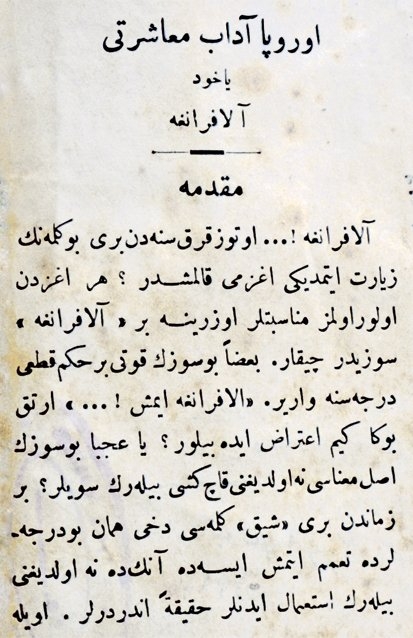 اوروپا آداب معاشرتی
یاخود
آلافرانغه
مقدمه
آلافرانغه !... اوتوز قرق سنه‌دن بری بوکله‌نك
زیارت ایتمدیکی اغزمی قالمشدر ؟ هر اغزدن
اولور اولمز مناسبتلر اوزرینه بر « آلافرانغه »
سوزیدر چیقار. بعضاً بوسوزك قوتی برحکم قطعی
درجه‌سنه واریر. «الافرانغه ایمش !... » ارتق
بوکا کیم اعتراض ایده بیلور ؟ یا عجبا بوسوزك
اصل معناسی نه اولدیغنی قاچ کشی بیله‌رك سویلر؟ بر
زماندن بری «شیق» کله‌سی دخی همان بودرجه‌-
لرده تعمم ایتمش ایسه‌ده آنك‌ده نه اولدیغنی
بیله‌رك استعمال ایدنلر حقیقةً اندردرلر . اویله